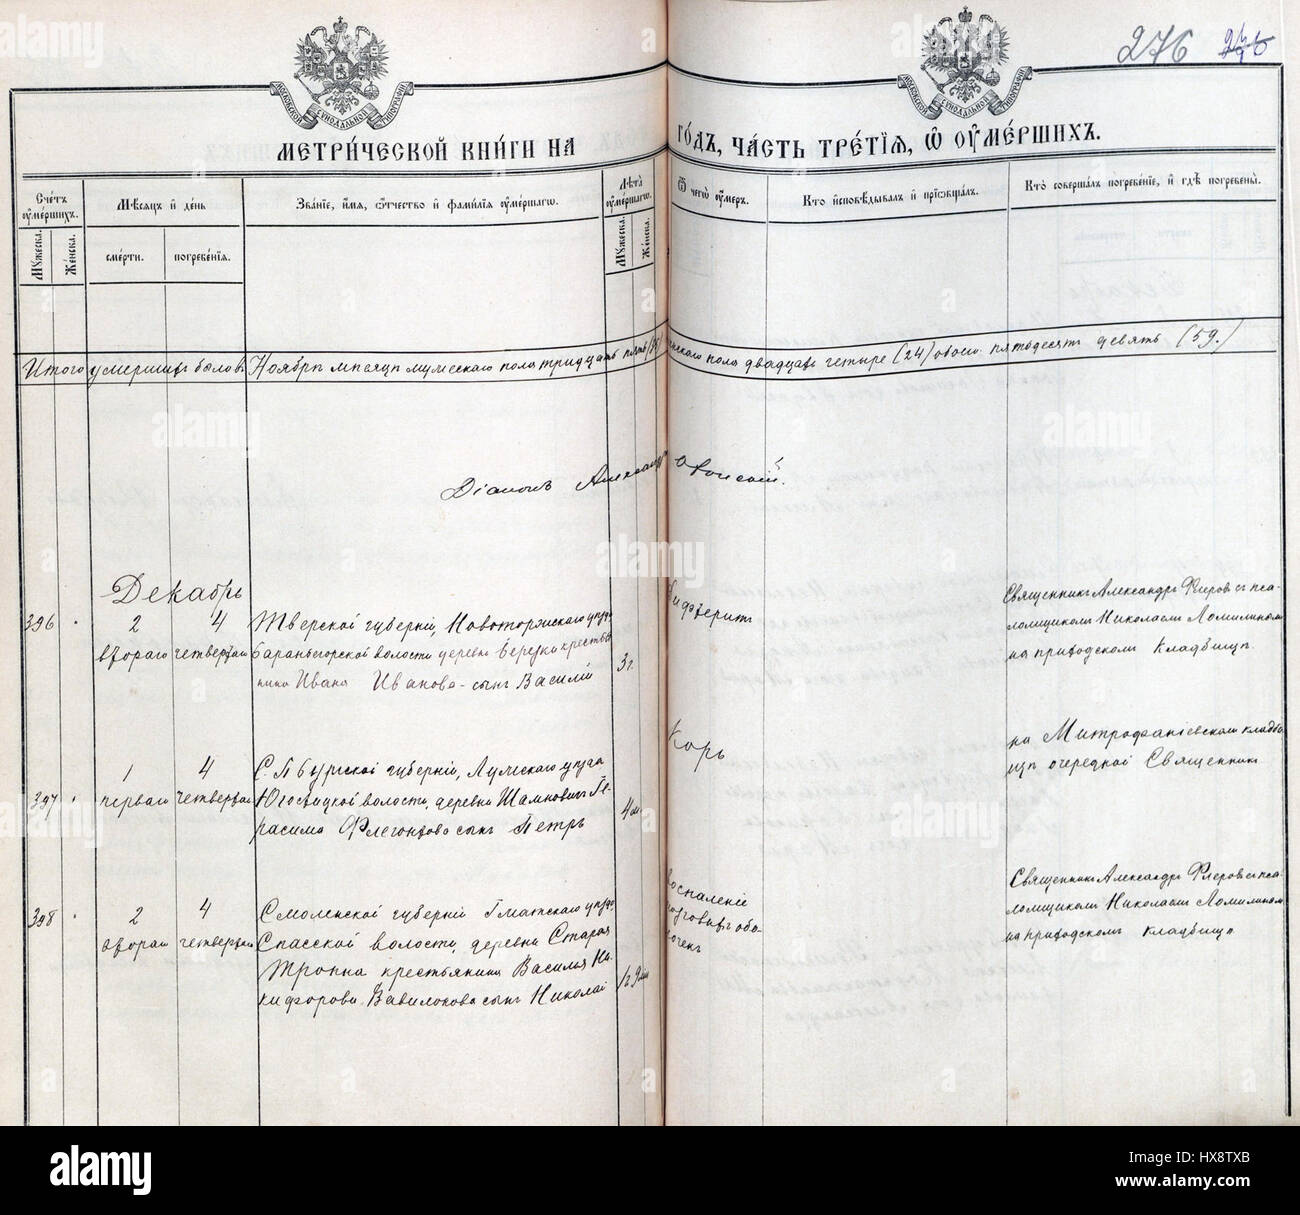 276
МОСКОВСКОЙ СѴНОДАЛЬНОЙ ТИПОГРАФІИ
МОСКОВСКОЙ СѴНОДАЛЬНОЙ ТИПОГРАФІИ
МЕТРИ́ЧЕСКОЙ КНИ́ГИ НА ГО́ДЪ, ЧА́СТЬ ТРЕ́ТІѦ, Ѿ ОУМЕ́РШИХЪ.
Сче́тъ оуме́ршихъ.
Мꙋжеска.
Же́нска.
Мѣ́сяцъ и де́нь
сме́рти.
погребе́нїя.
Зва́нїе, и́мя, ѻ́тчество и фами́лїя оуме́ршагѡ.
Лѣ́та оуме́ршагѡ.
Мꙋжеска.
Же́нска.
Ѿ чегѡ̀ оу́меръ.
Кто̀ исповѣ́дывалъ и прїѡбща́лъ.
Кто̀ соверша́лъ погребе́нїе, и гдѣ̀ погребены̀.
Итого умершихъ было въ Ноябрѣ мѣсяцѣ мужескаго пола тридцать пять (35) женскаго пола двадцать четыре (24) обоего пятьдесятъ девять (59.)
Діаконъ Александръ
Декабрь
396
2
4
втораго четвертаго
Тверской губерніи, Новоторжскаго уѣзда
Бараньегорской волости деревни Березки крестья
нина Ивана Иванова сынъ Василій
3 г.
Дифтеритъ
Священникъ Александръ Флеровъ съ пса
ломщикомъ Николаемъ Ломилиномъ
на приходскомъ кладбищѣ.
397
1
4
перваго четвертаго
С.П.Бургской губерніи, Лужскаго уѣзда
волости, деревни Ге
расима Флегонтова сынъ Петръ
4 м
Корь
на Митрофаніевскомъ кладби
щѣ очередной Священникъ
398
2
4
втораго четвертаго
Смоленской губерніи Гжатскаго уѣзда
Спасской волости, деревни Старая
Тропка крестьянина Василья Ни
кифорова Вавилокова сынъ Николай
1 г 9 м
Воспаленіе
мозговыхъ обо
лочекъ
Священникъ Александръ Флеровъ съ пса
ломщикомъ Николаемъ Ломилиномъ
на приходскомъ кладбищѣ
alamy
alamy
Image ID: HX8TXB
www.alamy.com